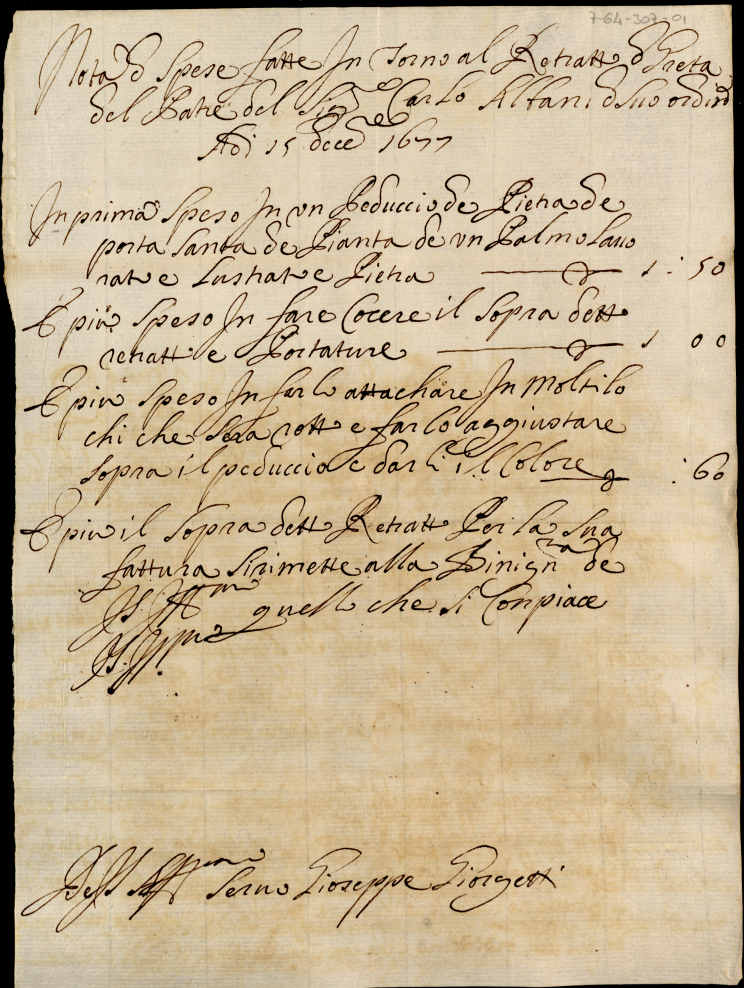 7-64-307-01
Nota d Spese fatte In torno al Retratto d Creta
del Patre del Sig.re Carlo Albani d suo ordine
Adi 15 dece 1677
In prima Speso In un Peduccio de Pietra de
porta Santa de Pianta de un Palmo lauo
rat e lustrat e Pietra 1 : 50
E piu Speso In fare Cocere il Sopra dett
retratt e Portature 1 00
E piu speso In farlo attachare In molti lo
chi che sera rott e farlo aggiustare
sopra il peduccio e darli il Colore : 60
E piu il Sopra dett Retratt Per la sua
fattura si rimette alla Binign.ta de
quell che si Conpiace
Seruo Gioseppe Giorgetti